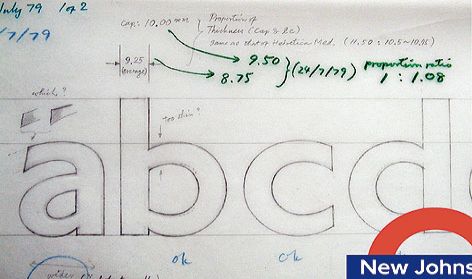 July 79 1 of 2
/7/79
Cap: 10.00 mm
Proportion of
Thickness (Cap & lc)
Same as that of Helvetica Med. (11.50 : 10.5~10.95)
9.25
(average)
9.50
8.75
(24/7/79)
proportion ratio
1 : 1.08
which?
too thin?
abcd
ok
ok
New Johns